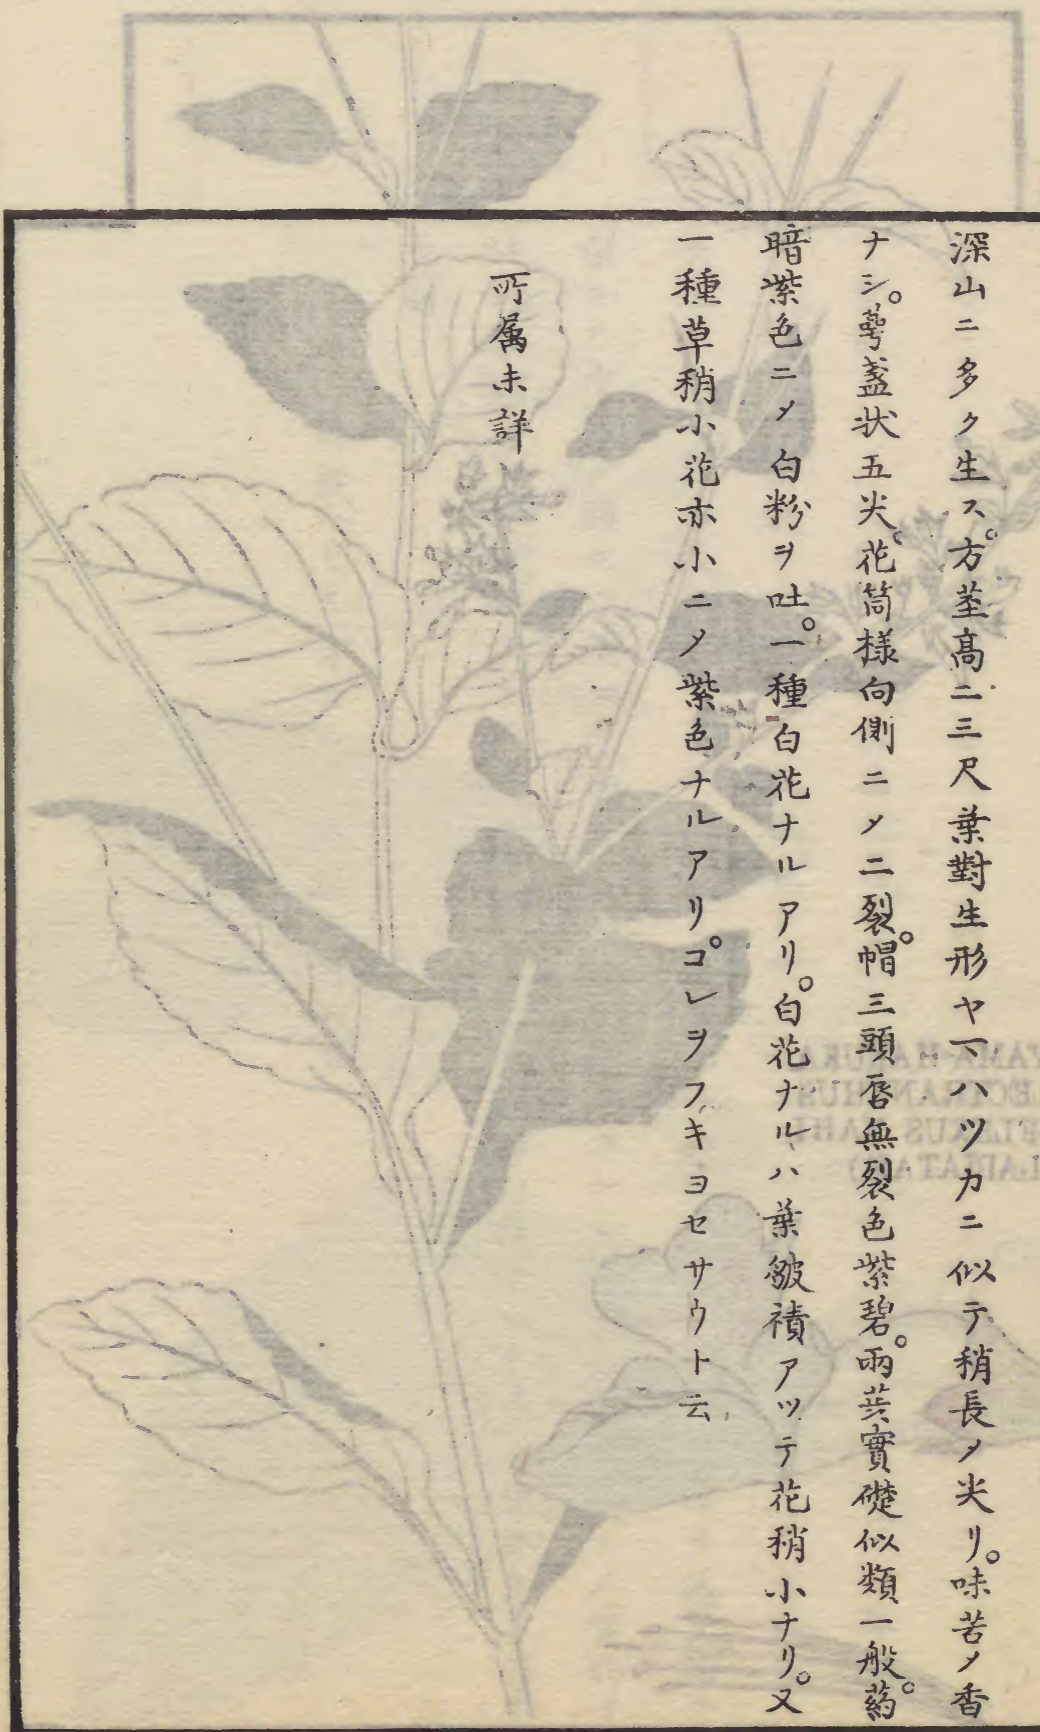 深山ニ多ク生ス。方茎高二三尺葉對生形ヤマハツカニ似テ稍長メ尖リ。味苦メ香
ナシ。萼盞状五尖。花筒様向側ニメ二裂。帽三頭唇無裂色紫碧。兩蕋實礎似類一般葯。
暗紫色ニメ白粉ヲ吐。一種白花ナルアリ。白花ナルハ葉皺積アツテ花稍小ナリ。又
一種草稍小花亦小ニメ紫色ナルアリ。コレヲフキヨセサウト云
所属未詳